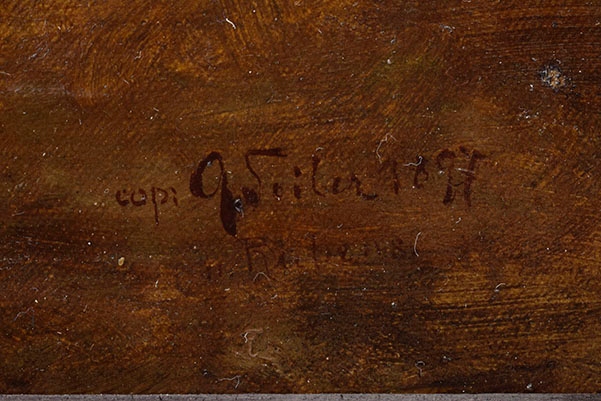 cop: G. Seiler 1897
n. Rubens